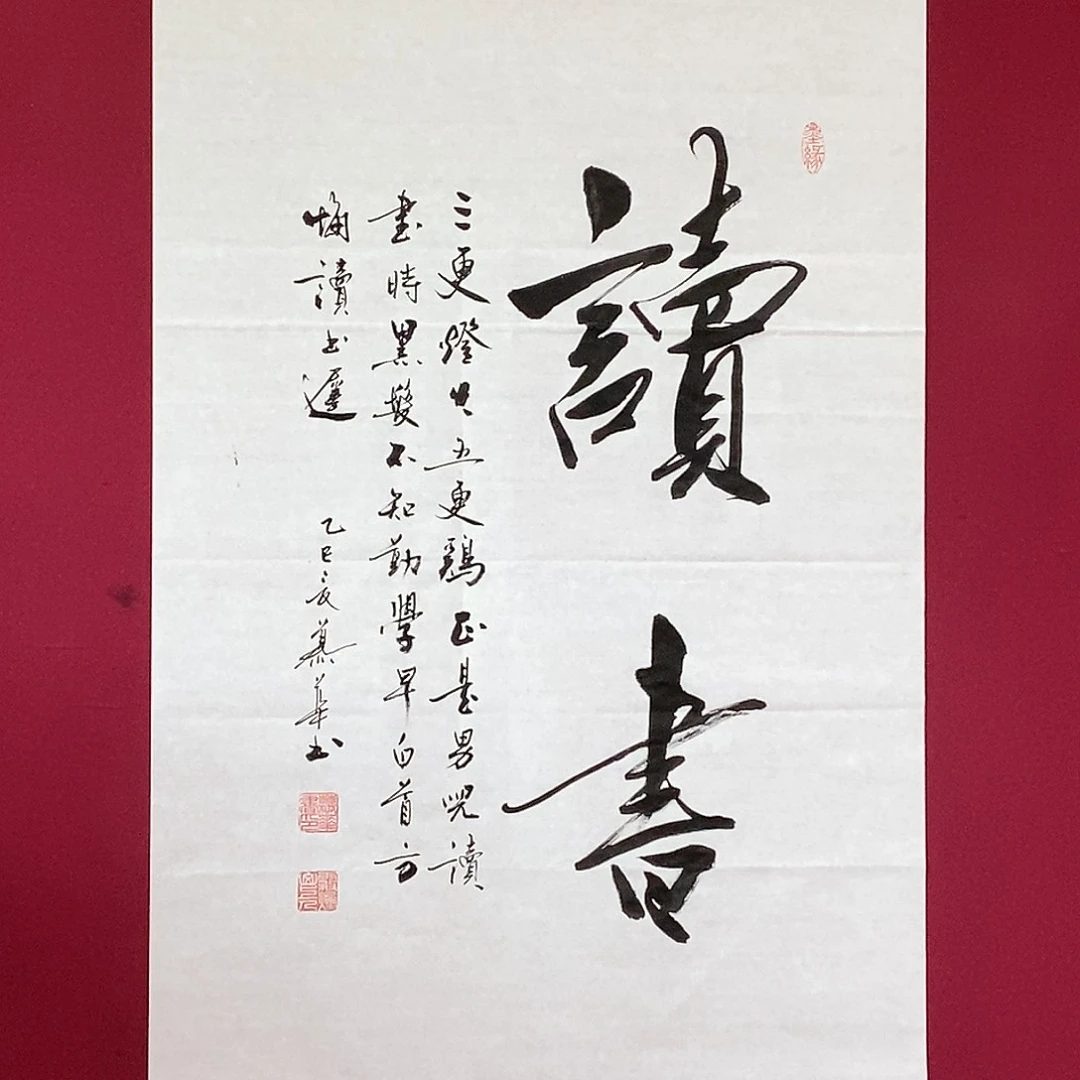 墨緣
讀書
三更燈火五更鷄正是男兒讀
書時黑髮不知勤學早白首方
悔讀書遲 乙巳夏慕華書